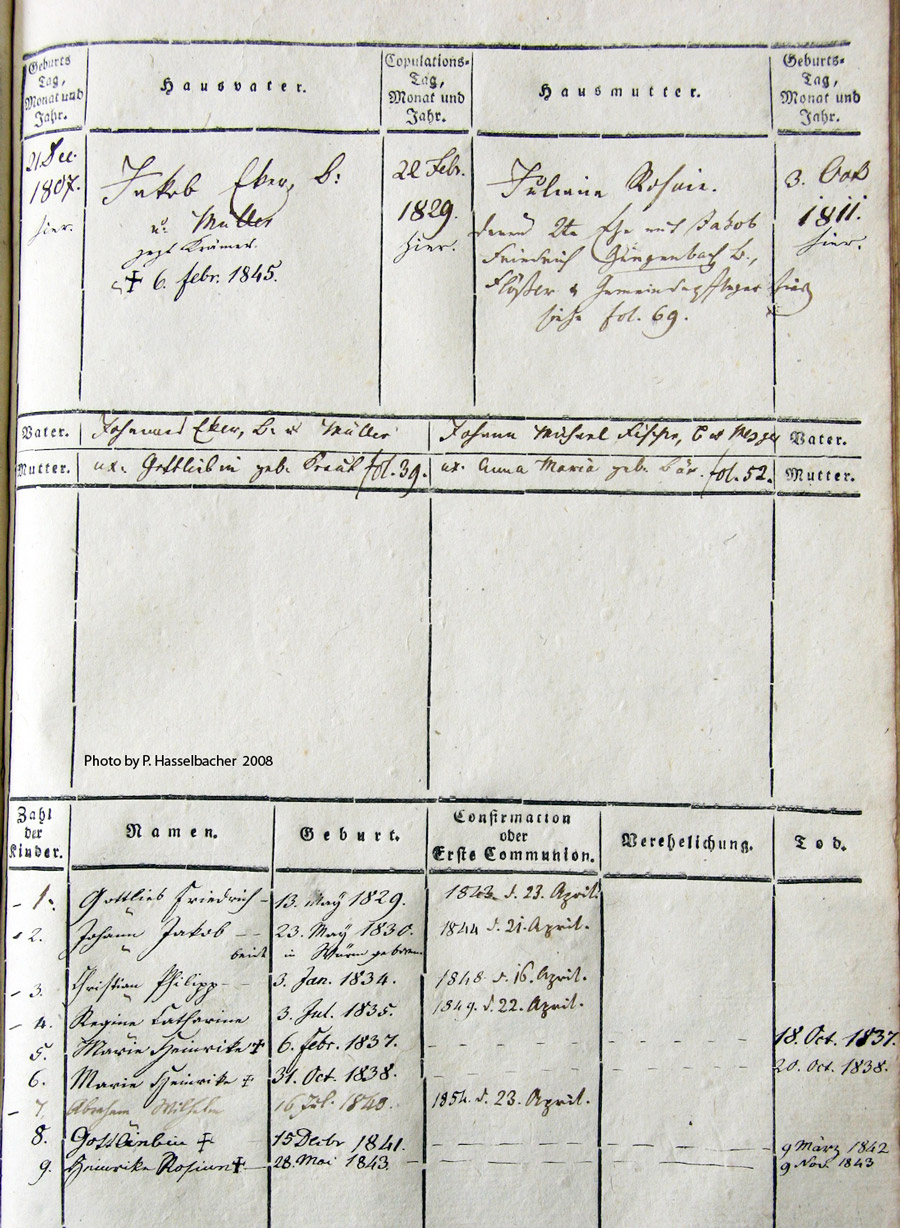 Geburts Tag, Monat und Jahr.
Hausvater.
Copulations- Tag, Monat und Jahr.
Hausmutter.
Geburts- Tag, Monat und Jahr.
21. Dec.
1807.
hier.
Jakob Eker, B:
u. Müller
jezt Krämer.
✝ 6. febr. 1845.
22 Febr.
1829.
hier.
Juliane Rosine.
deren 2te Ehe mit Jakob
Friedrich Güngenbach B.,
Flößer & Gemeindepfleger hier
siehe fol. 69.
3. Oct
1811.
hier.
Vater. Johannes Eker, B. u. Müller Johann Michael Fischer, B u Mezger Vater.
Mutter. ux. Gottliebin geb. fol. 39. ux. Anna Maria geb. Bär. fol. 52. Mutter.
Photo by P. Hasselbacher 2008
Zahl der Kinder.
Namen.
Geburt.
Confirmation oder Erste Communion.
Verehelichung.
Tod.
1. Gottlieb Friedrich 13. May 1829. 1843. d. 23. April.
2. Johann Jakob 23. May 1830. 1844 d. 21. April.
beide in Würm geboren.
3. Christian Philipp 3. Jan. 1834. 1848 d. 16. April.
4. Regine Catharine 3. Jul. 1835. 1849. d. 22. April.
5. Marie Heinrike ✝ 6. febr. 1837. 18. Oct. 1837.
6. Marie Heinrike ✝ 31. Oct. 1838. 20. Oct. 1838.
7. Abraham Wilhelm 16 Jul. 1840. 1854. d. 23. April.
8. Gottliebin ✝ 15 Decbr 1841. 9 März 1842
9. Heinrike Rosine ✝ 28. Mai 1843. 9 Nov. 1843